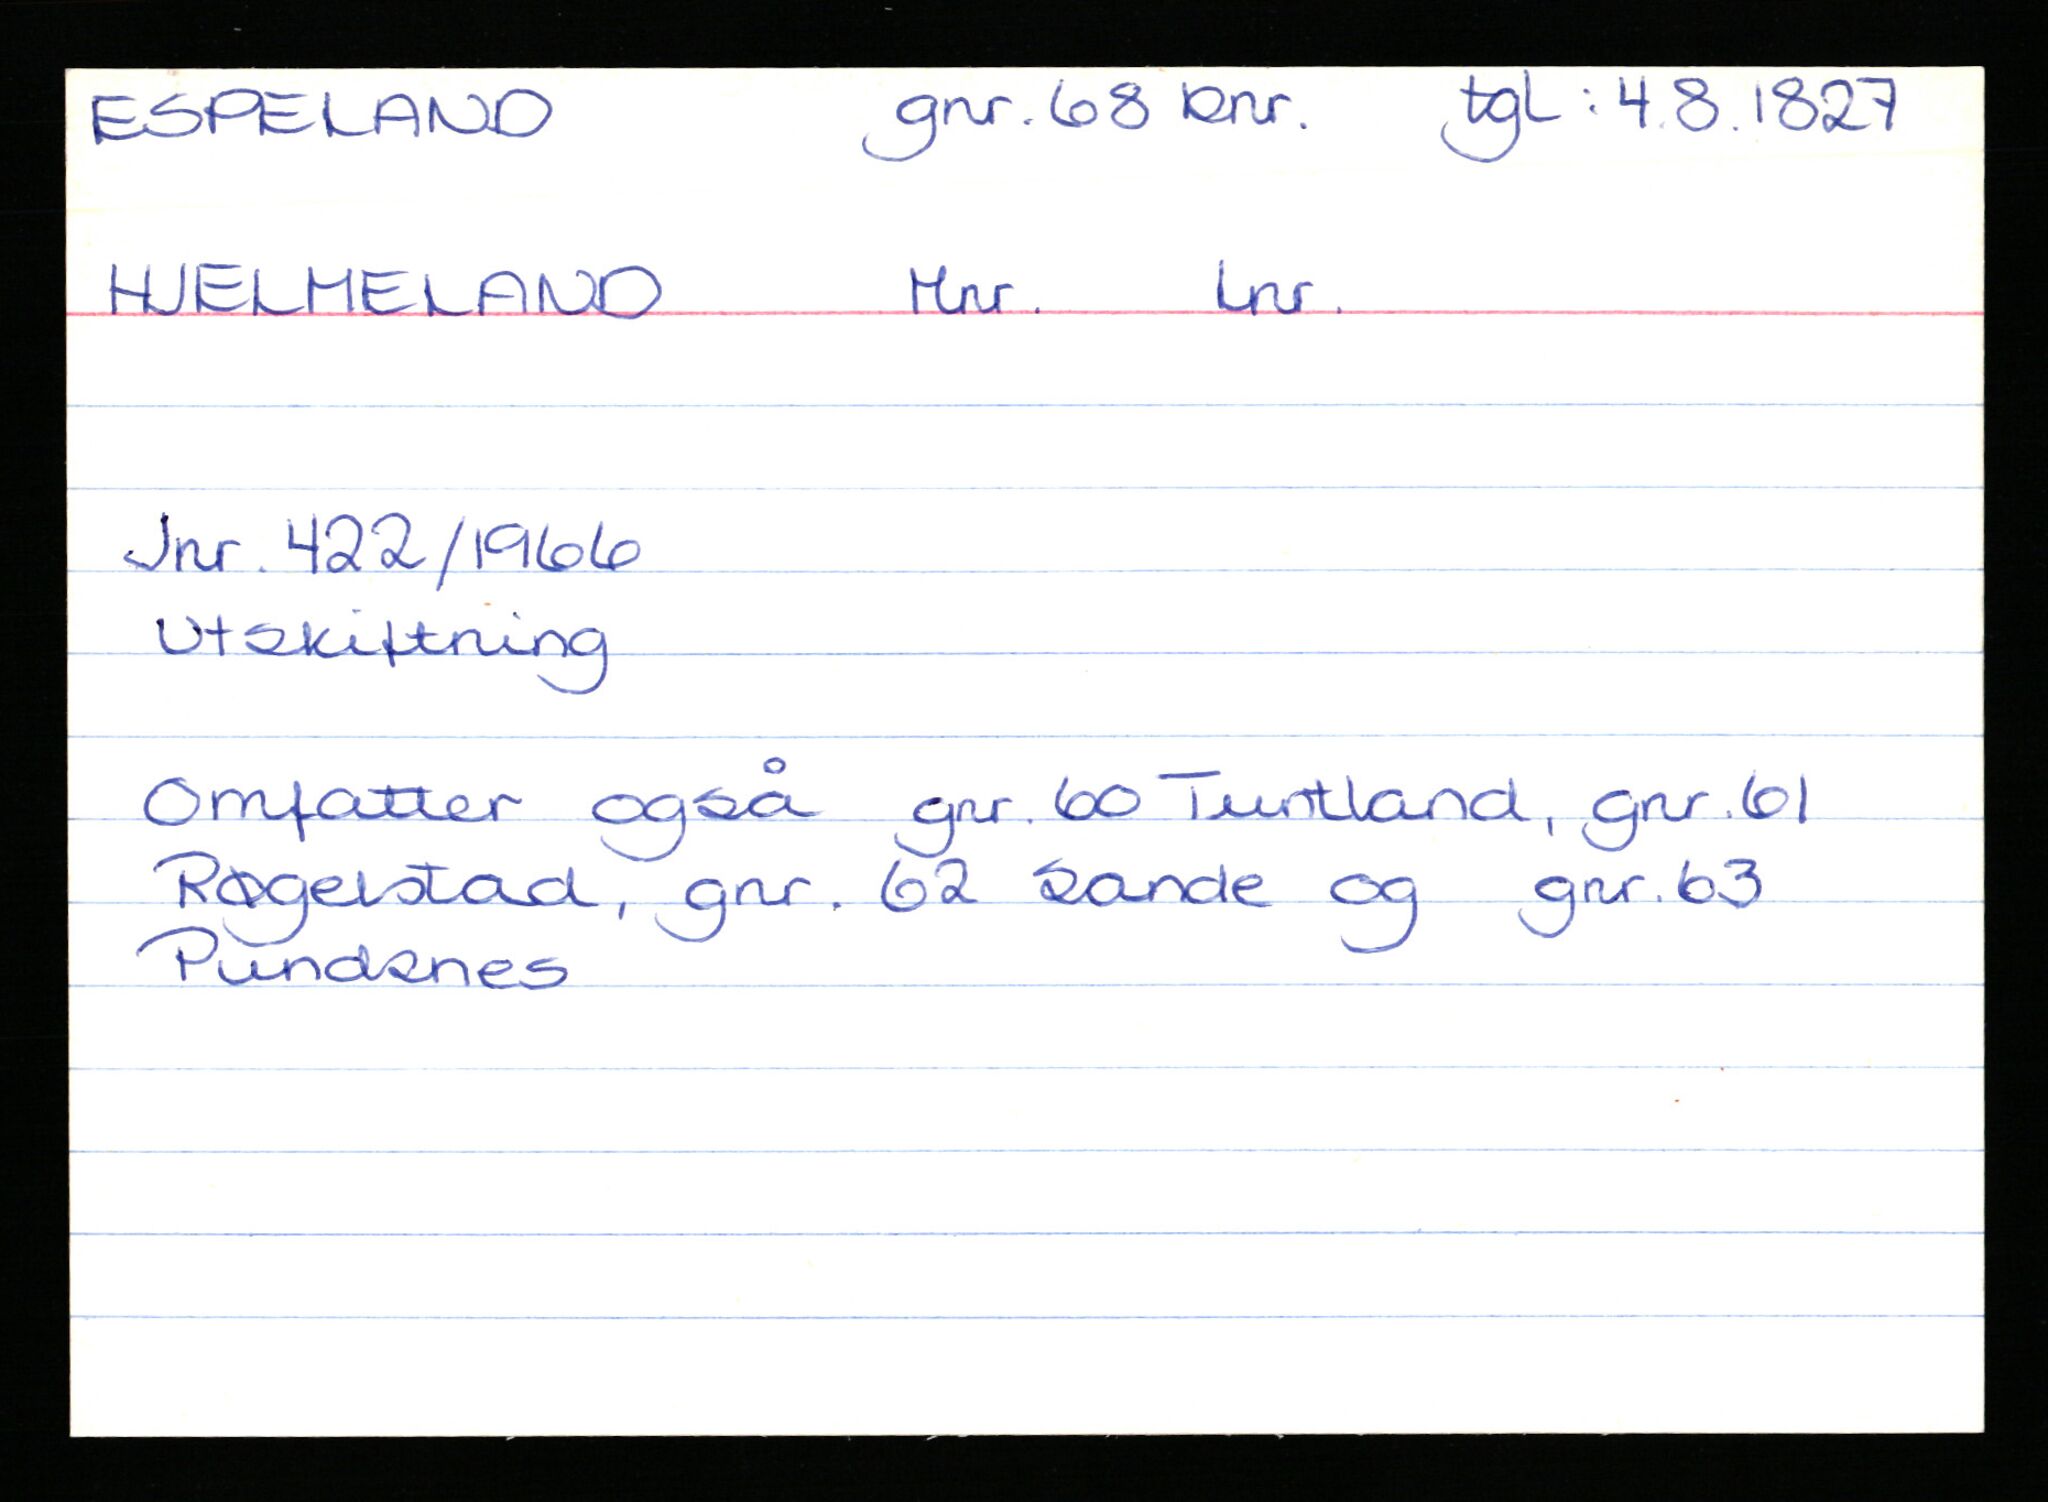 ESPELAND gnr. 68 bnr. tgl: 4.8.1827
HJELMELAND Mnr. Lnr.
Jnr. 422/1966
Utskiftning
Omfatter også gnr. 60 Tuntland, gnr. 61
Røgelstad, gnr. 62 Sande og gnr. 63
Pundsnes